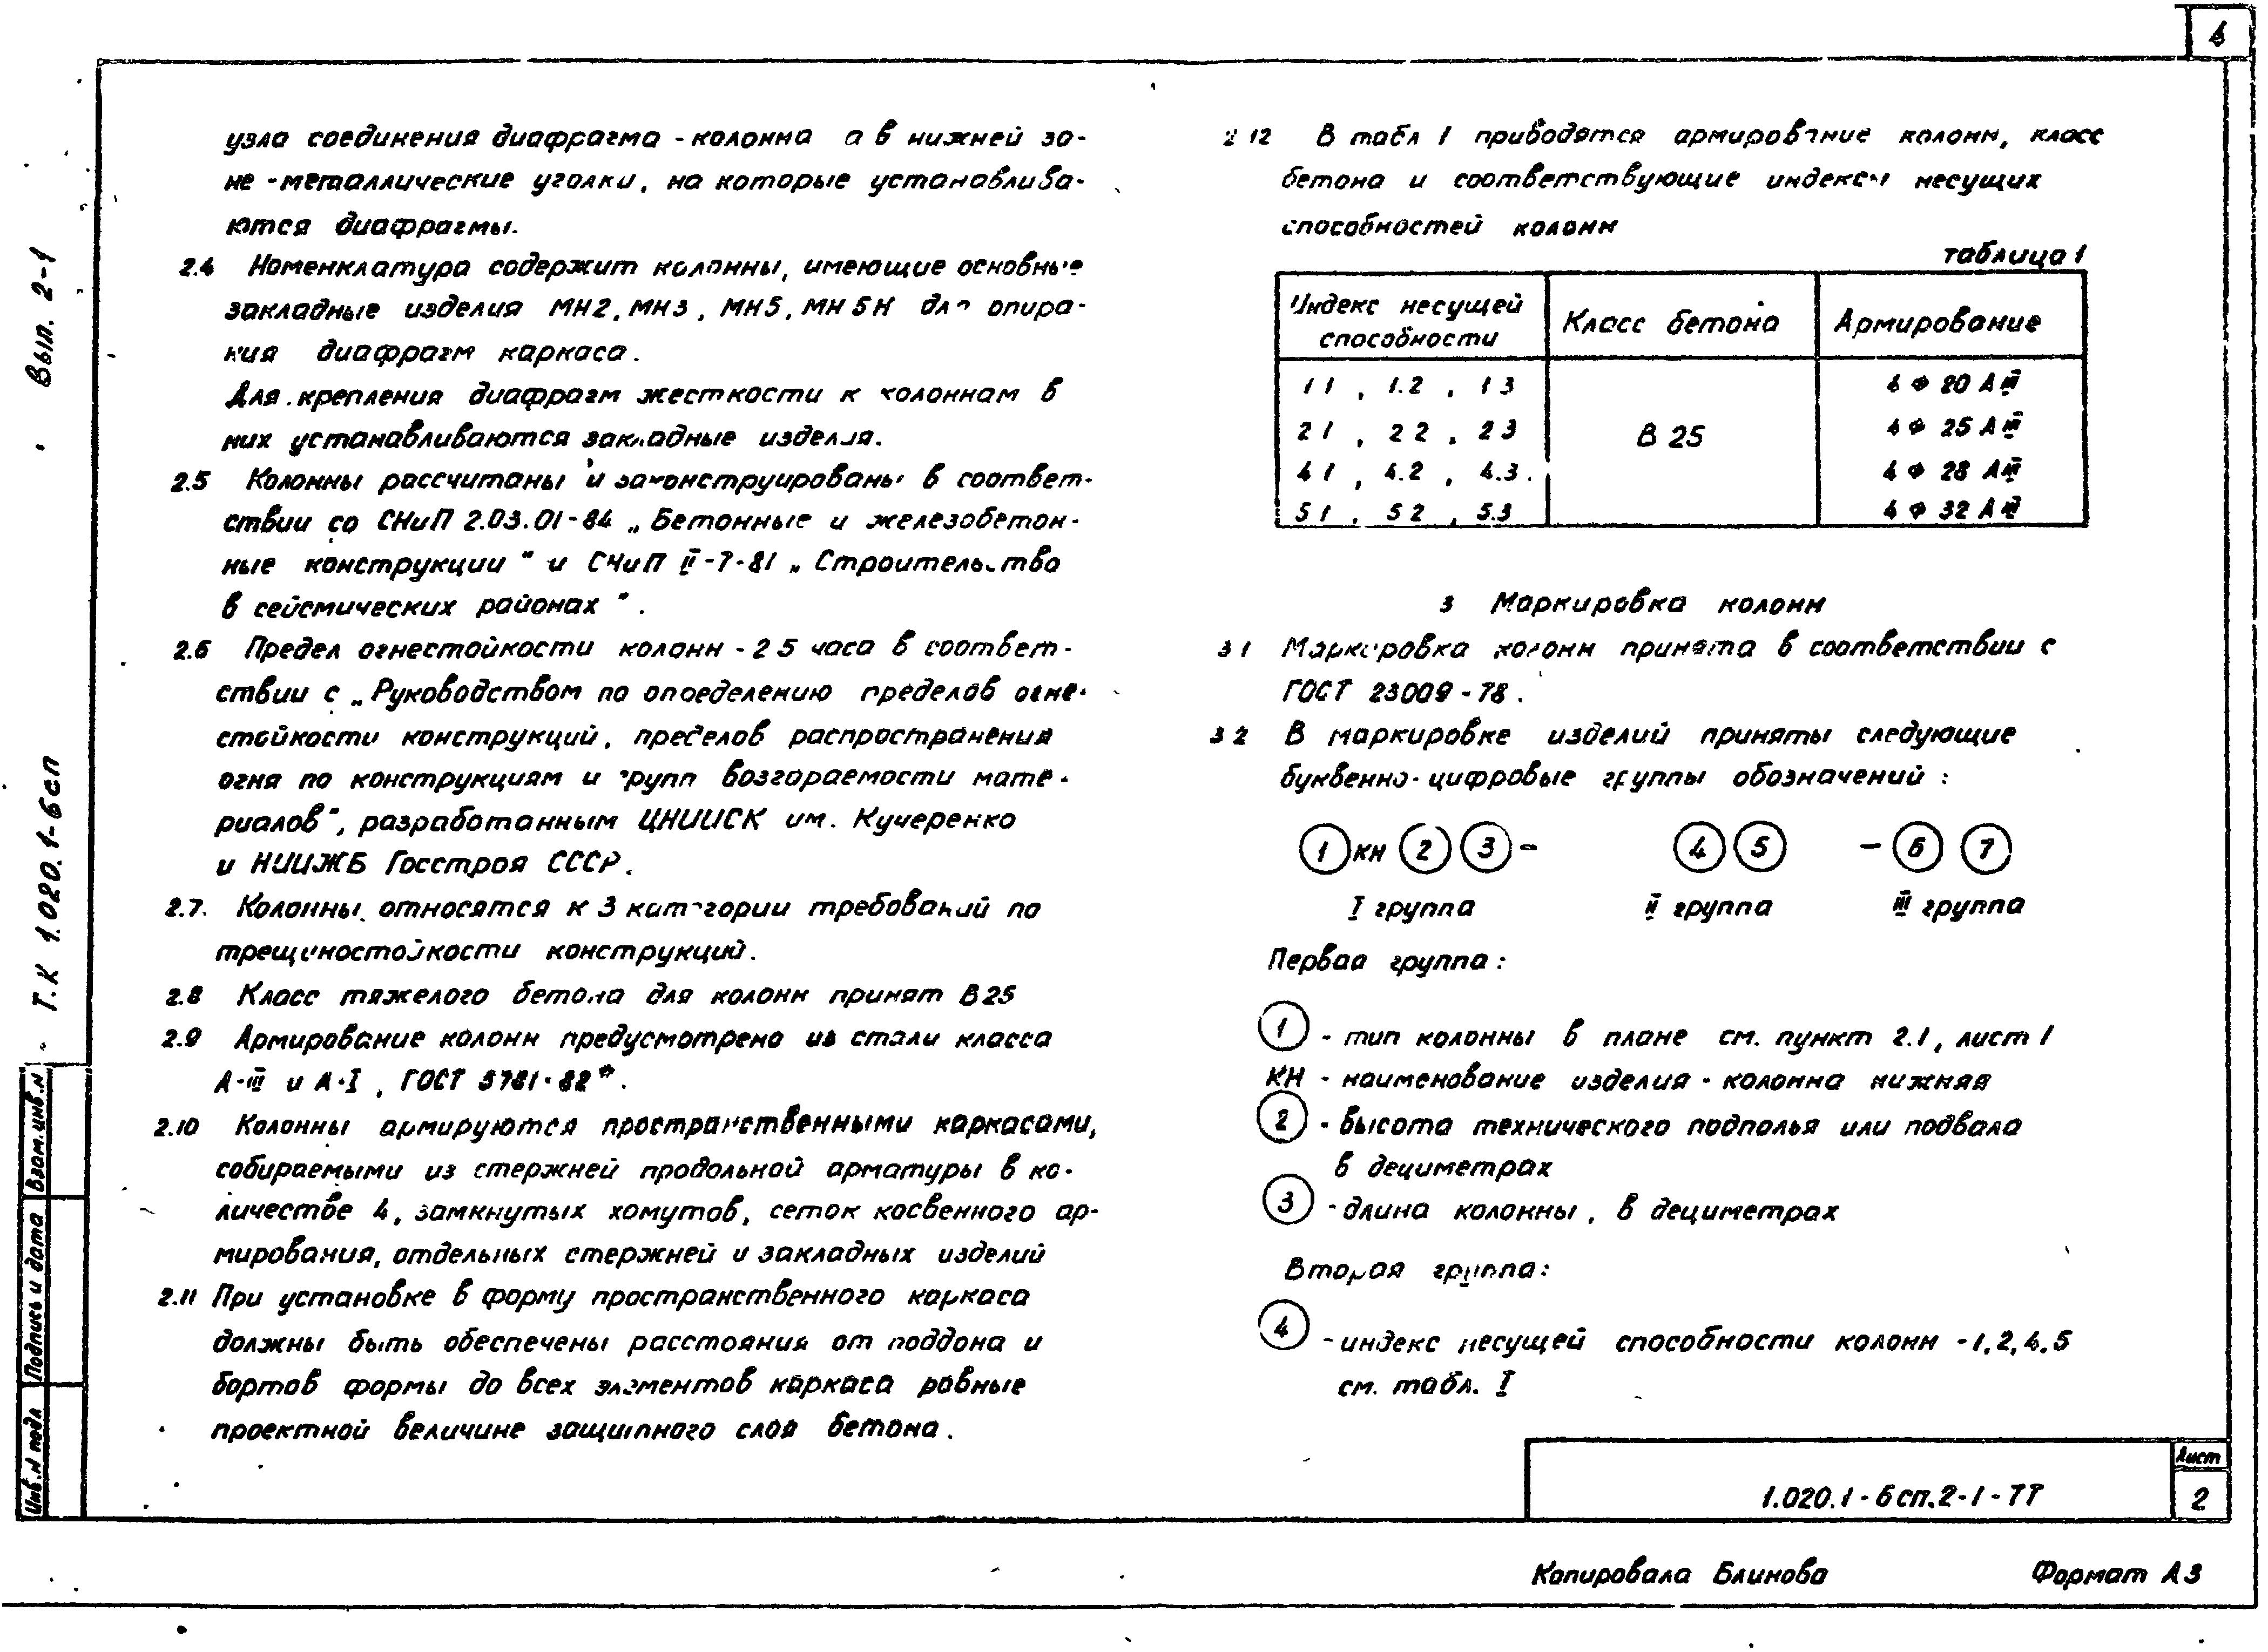 4
узла соединения диафрагма - колонна а в нижней зо-
не - металлические уголки, на которые устанавлива-
ются диафрагмы.
2.4 Номенклатура содержит колонны, имеющие основные
закладные изделия МН2, МН3, МН5, МН5Н для опира-
ния диафрагм каркаса.
Для крепления диафрагм жесткости к колоннам в
них устанавливаются закладные изделия.
2.5 Колонны рассчитаны и законструированы в соответ-
ствии со СНиП 2.03.01-84 „Бетонные и железобетон-
ные конструкции" и СНиП II-7-81 „Строительство
в сейсмических районах".
2.6 Предел огнестойкости колонн - 2 5 часа в соответ-
ствии с „Руководством по определению пределов огне-
стойкости конструкций, пределов распространения
огня по конструкциям и групп возгораемости мате-
риалов", разработанным ЦНИИСК им. Кучеренко
и НИИЖБ Госстроя СССР.
2.7. Колонны относятся к 3 категории требований по
трещиностойкости конструкций.
2.8 Класс тяжелого бетона для колонн принят В25
2.9 Армирование колонн предусмотрено из стали класса
А-III и А-I, ГОСТ 5781-82*.
2.10 Колонны армируются пространственными каркасами,
собираемыми из стержней продольной арматуры в ко-
личестве 4, замкнутых хомутов, сеток косвенного ар-
мирования, отдельных стержней и закладных изделий
2.11 При установке в форму пространственного каркаса
должны быть обеспечены расстояния от поддона и
бортов формы до всех элементов каркаса равные
проектной величине защитного слоя бетона.
2 12 В табл 1 приводятся армирование колонн, класс
бетона и соответствующие индексы несущих
способностей колонн
таблица 1
Индекс несущей способности Класс бетона Армирование
1 1, 1.2, 1 3 4 Ф 20 АIII
2 1, 2 2, 2 3 В 25 4 Ф 25 АIII
4 1, 4.2, 4.3. 4 Ф 28 АIII
5 1, 5 2, 5.3 4 Ф 32 АIII
3 Маркировка колонн
3 1 Маркировка колонн принята в соответствии с
ГОСТ 23009-78.
3 2 В маркировке изделий приняты следующие
буквенно-цифровые группы обозначений:
1 КН 2 3 - 4 5 - 6 7
I группа II группа III группа
Первая группа:
1 - тип колонны в плане см. пункт 2.1, лист 1
КН - наименование изделия - колонна нижняя
2 - высота технического подполья или подвала
в дециметрах
3 - длина колонны, в дециметрах
Вторая группа:
4 - индекс несущей способности колонн - 1, 2, 4, 5
см. табл. I
1.020.1-6сп.2-1-ТТ
Лист
2
Копировала Блинова Формат А3
Т.К 1.020.1-6сп Вып. 2-1
Инв.N подл Подпись и дата Взам.инв.N